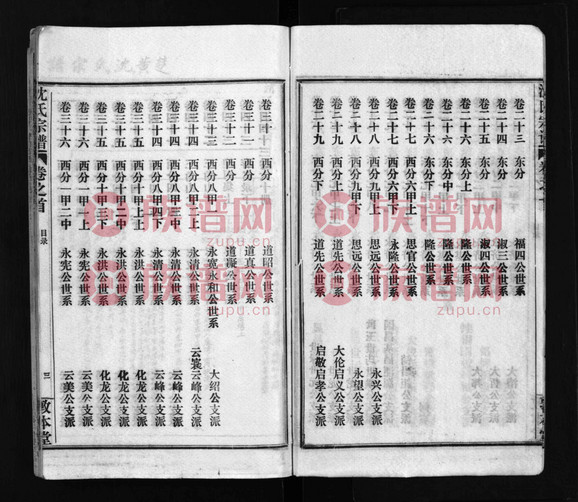 沈氏宗谱
卷二十三 东分 福四公世系
卷二十四 东分 淑三公世系
卷二十五 东分 淑四公世系
卷二十六 东分上 福隆公世系
卷二十六 东分中 隆公世系
卷二十六 东分下 隆公世系
卷二十七 西分六甲上 思官公世系
卷二十七 西分六甲下 永隆公世系
卷二十八 西分九甲上 思远公世系 永兴公支派
卷二十八 西分九甲下 思远公世系 永望公支派
卷二十九 西分上 道先公世系 大伦启义公支派
卷二十九 西分下 道先公世系 启敬启孝公支派
卷三十 西分十 道昭公世系
卷三十一 西分 公世系
卷三十二 西分 道礙公世系
卷三十三 西分八甲 永宽永和公世系 大绍公支派
卷三十四 西分八甲上 永清公世系 云裳云峰公支派
卷三十四 西分八甲中 永清公世系 云峰公支派
卷三十四 西分八甲下 永清公世系 云峰公支派
卷三十五 西分十甲上 永洪公世系 化龙公支派
卷三十五 西分十甲中 永洪公世系 化龙公支派
卷三十五 西分十甲下 永洪公世系 化龙公支派
卷三十六 西分一甲上 永宪公世系 云美公支派
卷三十六 西分一甲二中 永宪公世系 云美公支派
沈氏宗谱 卷之首 目录 三 敦本堂
族谱网
zupu.cn